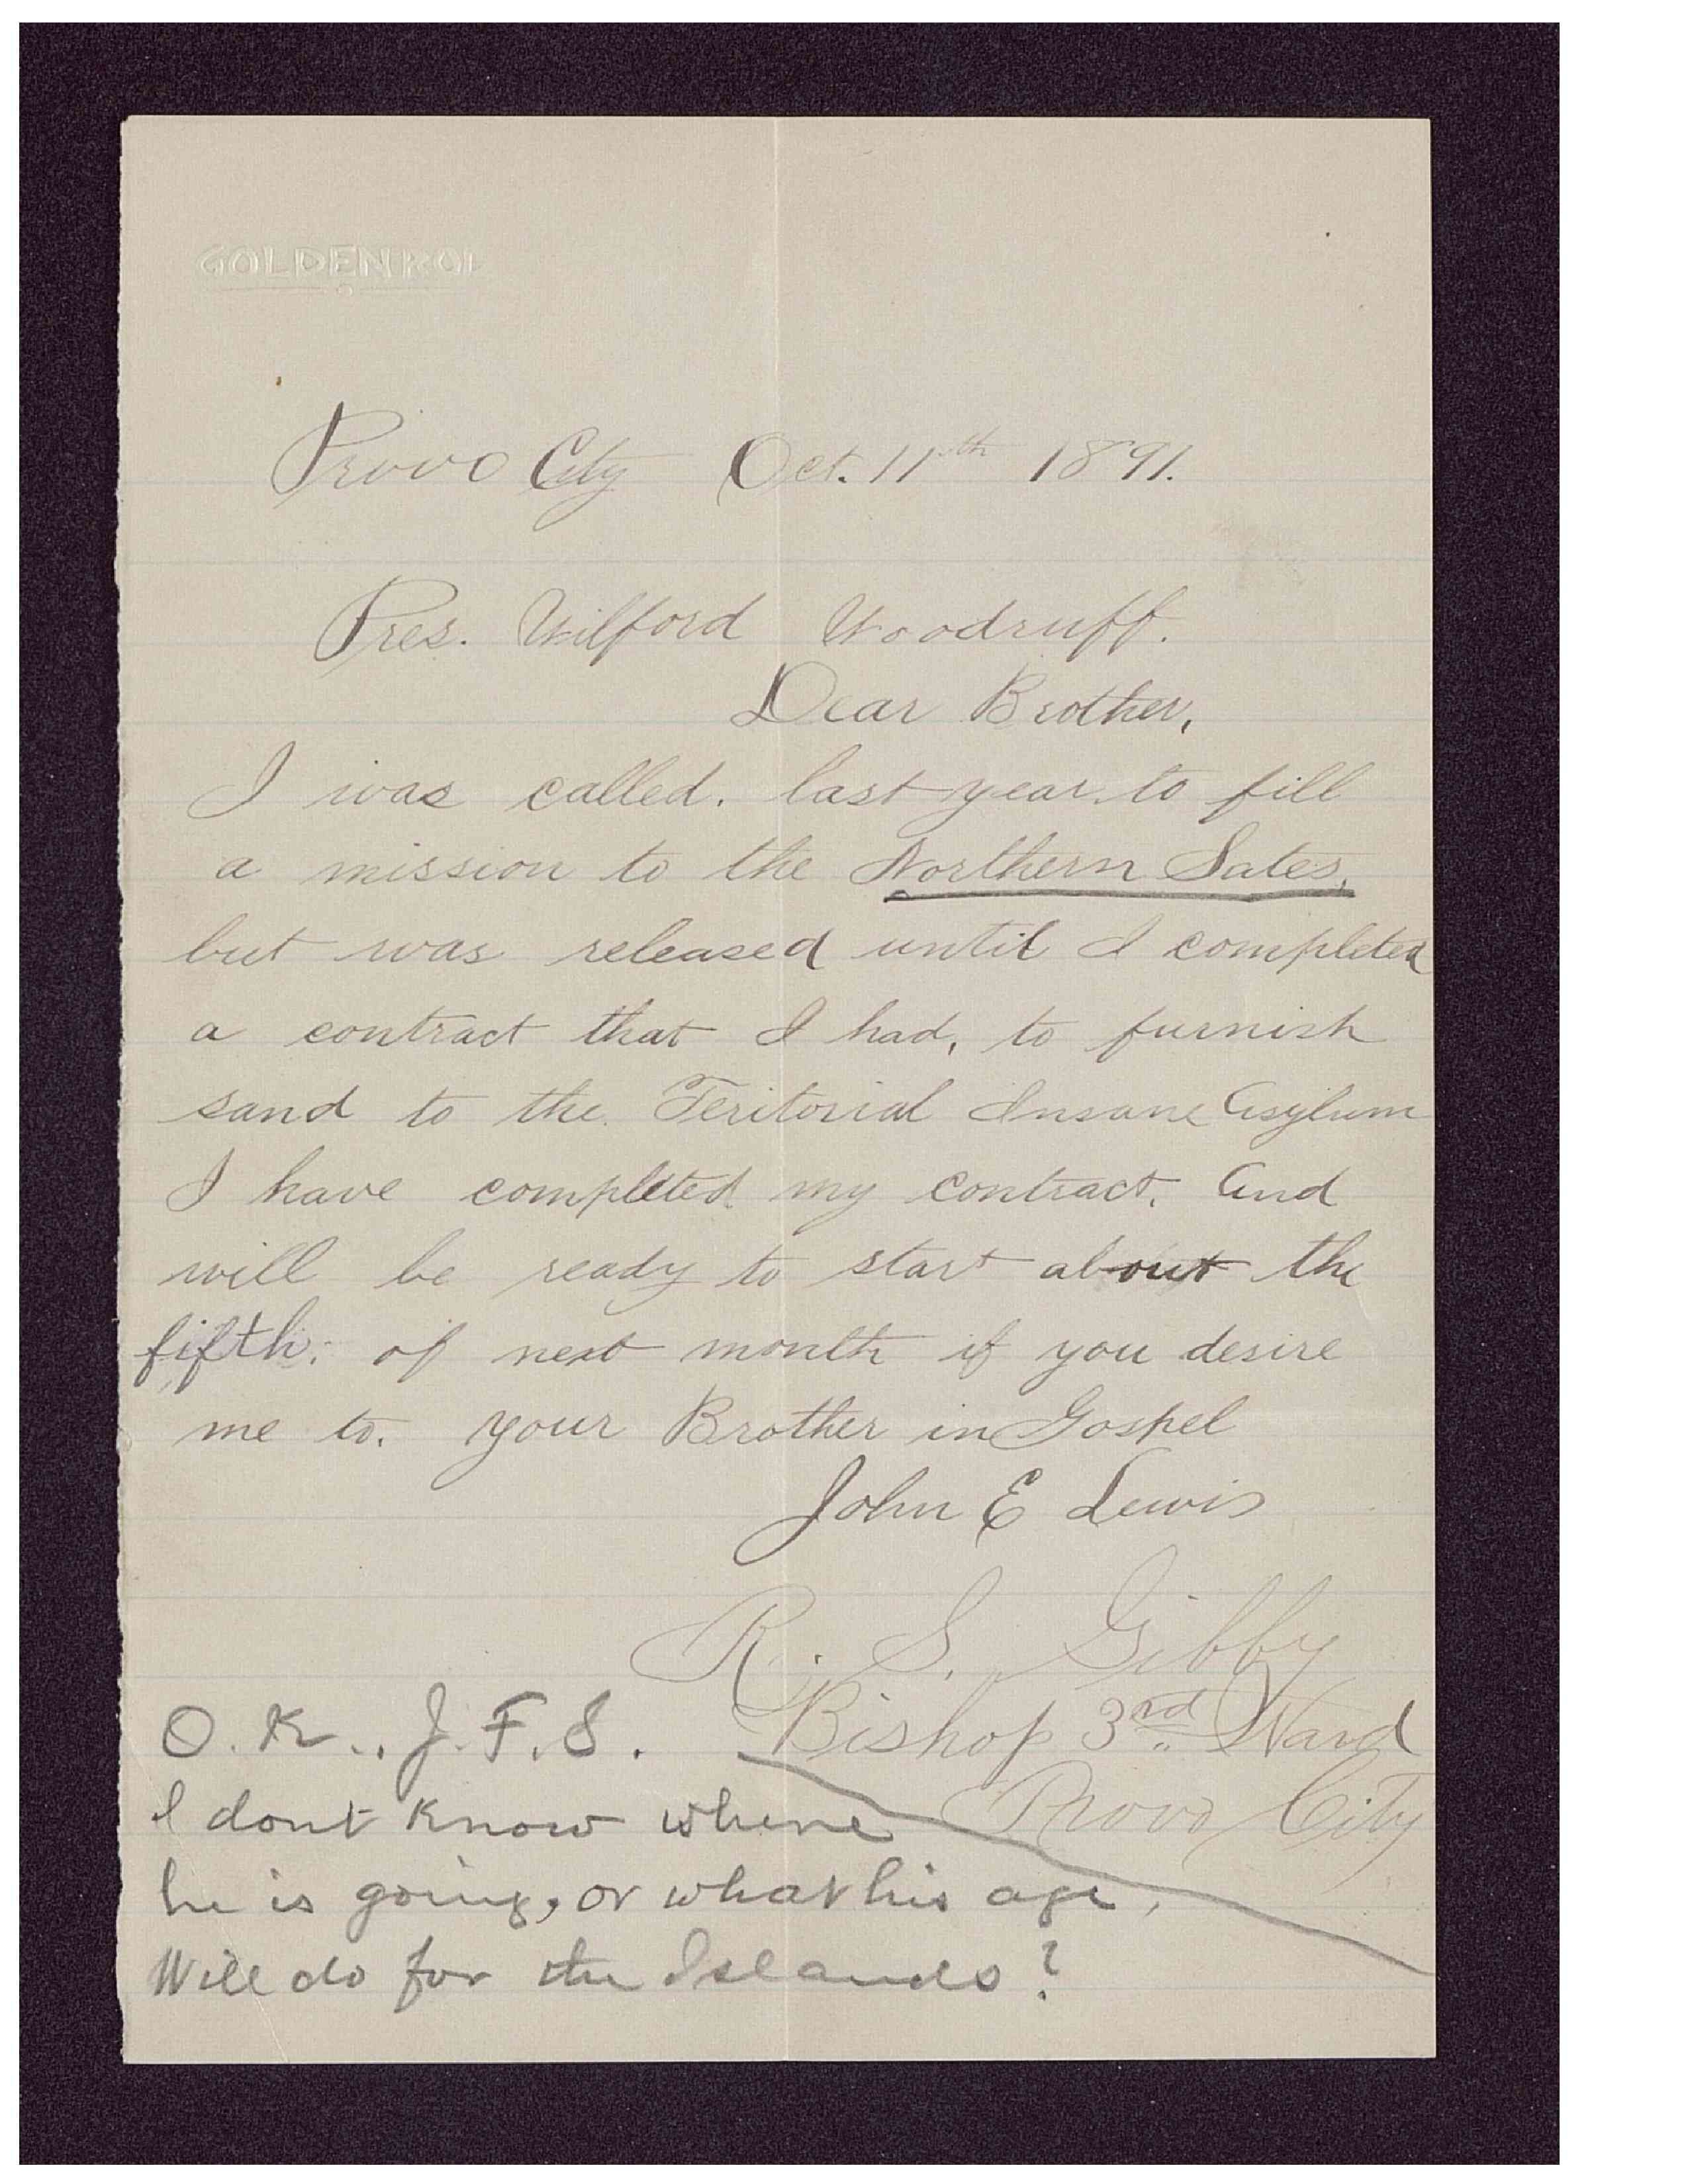 GOLDENROL
Provo City Oct. 11th 1891.
Pres. Wilford Woodruff.
Dear Brother,
I was called. last year to fill
a mission to the Northern Sates,
but was released until I completed
a contract that I had, to furnish
sand to the Teritorial Insane Asylum
I have completed my contract. And
will be ready to start about the
fifth. of next month if you desire
me to. your Brother in Gospel
John E Lewis
R. S. Gibby
Bishop 3rd Ward
Provo City
O.K.. J. F. S.
I dont know where
he is going, or what his age,
Will do for the Islands?